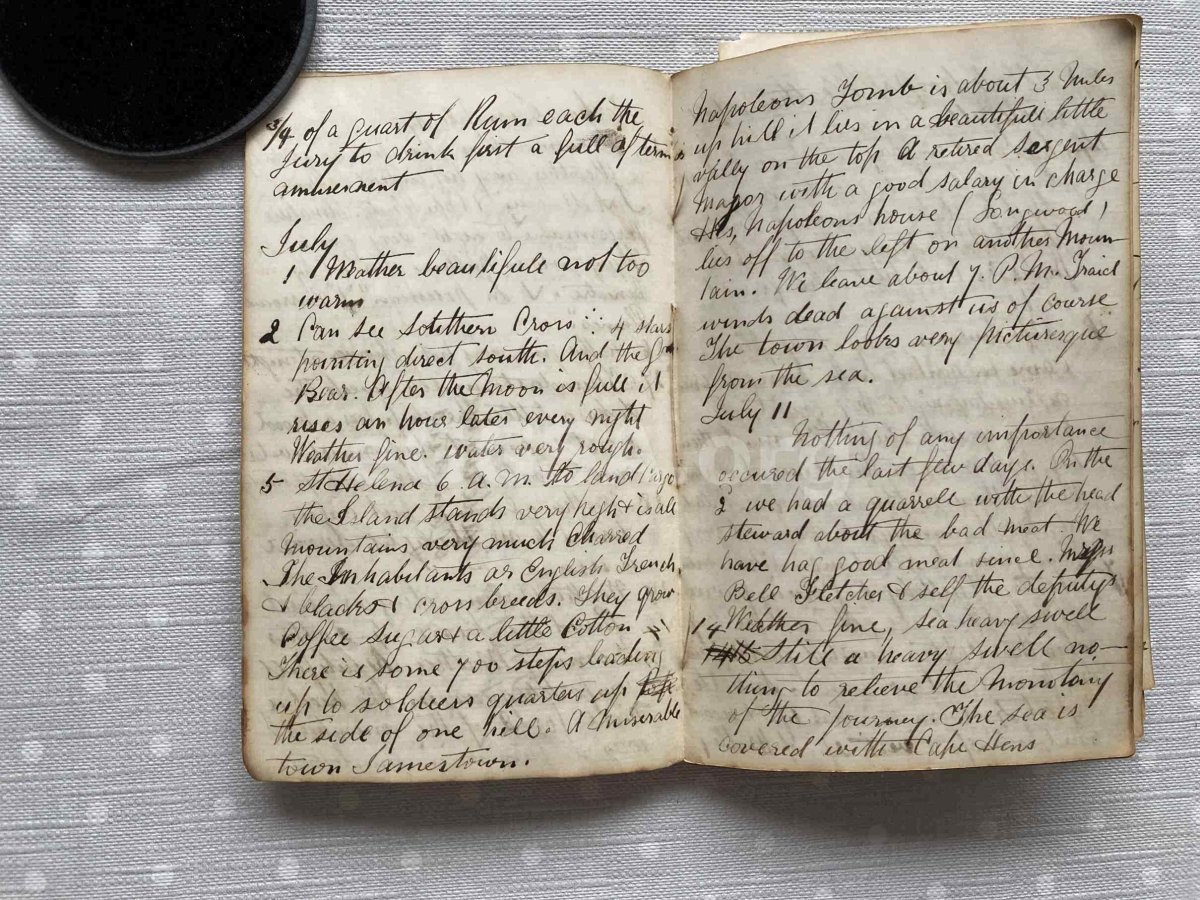 3/4 of a quart of Rum each the
Jury to drink first a full afternoons
amusement
July
1 Weather beautifull not too
warm
2 Can see Southern Cross :: 4 stars
pointing direct south. And the
Bear. After the Moon is full it
rises an hour later every night
Weather fine. water very rough.
5 St Helena 6. a. m. to land Cargo
the Island stands very high & is all
Mountains very much Charred
The Inhabitants ar English French
& blacks & cross breeds. They grow
Coffee Sugar & a little Cotton
There is some 700 steps leading
up to soldiers quarters up
the side of one hill. A Miserable
town Jamestown.
Napoleons Tomb is about 3 Miles
up hill it lies in a beautifull little
vally on the top A retired Sergent
Major with a good salary in charge
His, Napoleons house (Longwood)
lies off to the left on another Moun-
tain. We leave about 7. P. M. Traid
winds dead against us of course
The town looks very picturesque
from the sea.
July 11
Nothing of any importance
occured the last few days. On the
2 we had a quarrell with the head
steward about the bad meat We
have had good meat since.
Bell Fletcher & self the deputys
14 Weather fine, sea heavy swell
Still a heavy swell no-
thing to relieve the Monotony
of the journey. The sea is
covered with Cape Hens